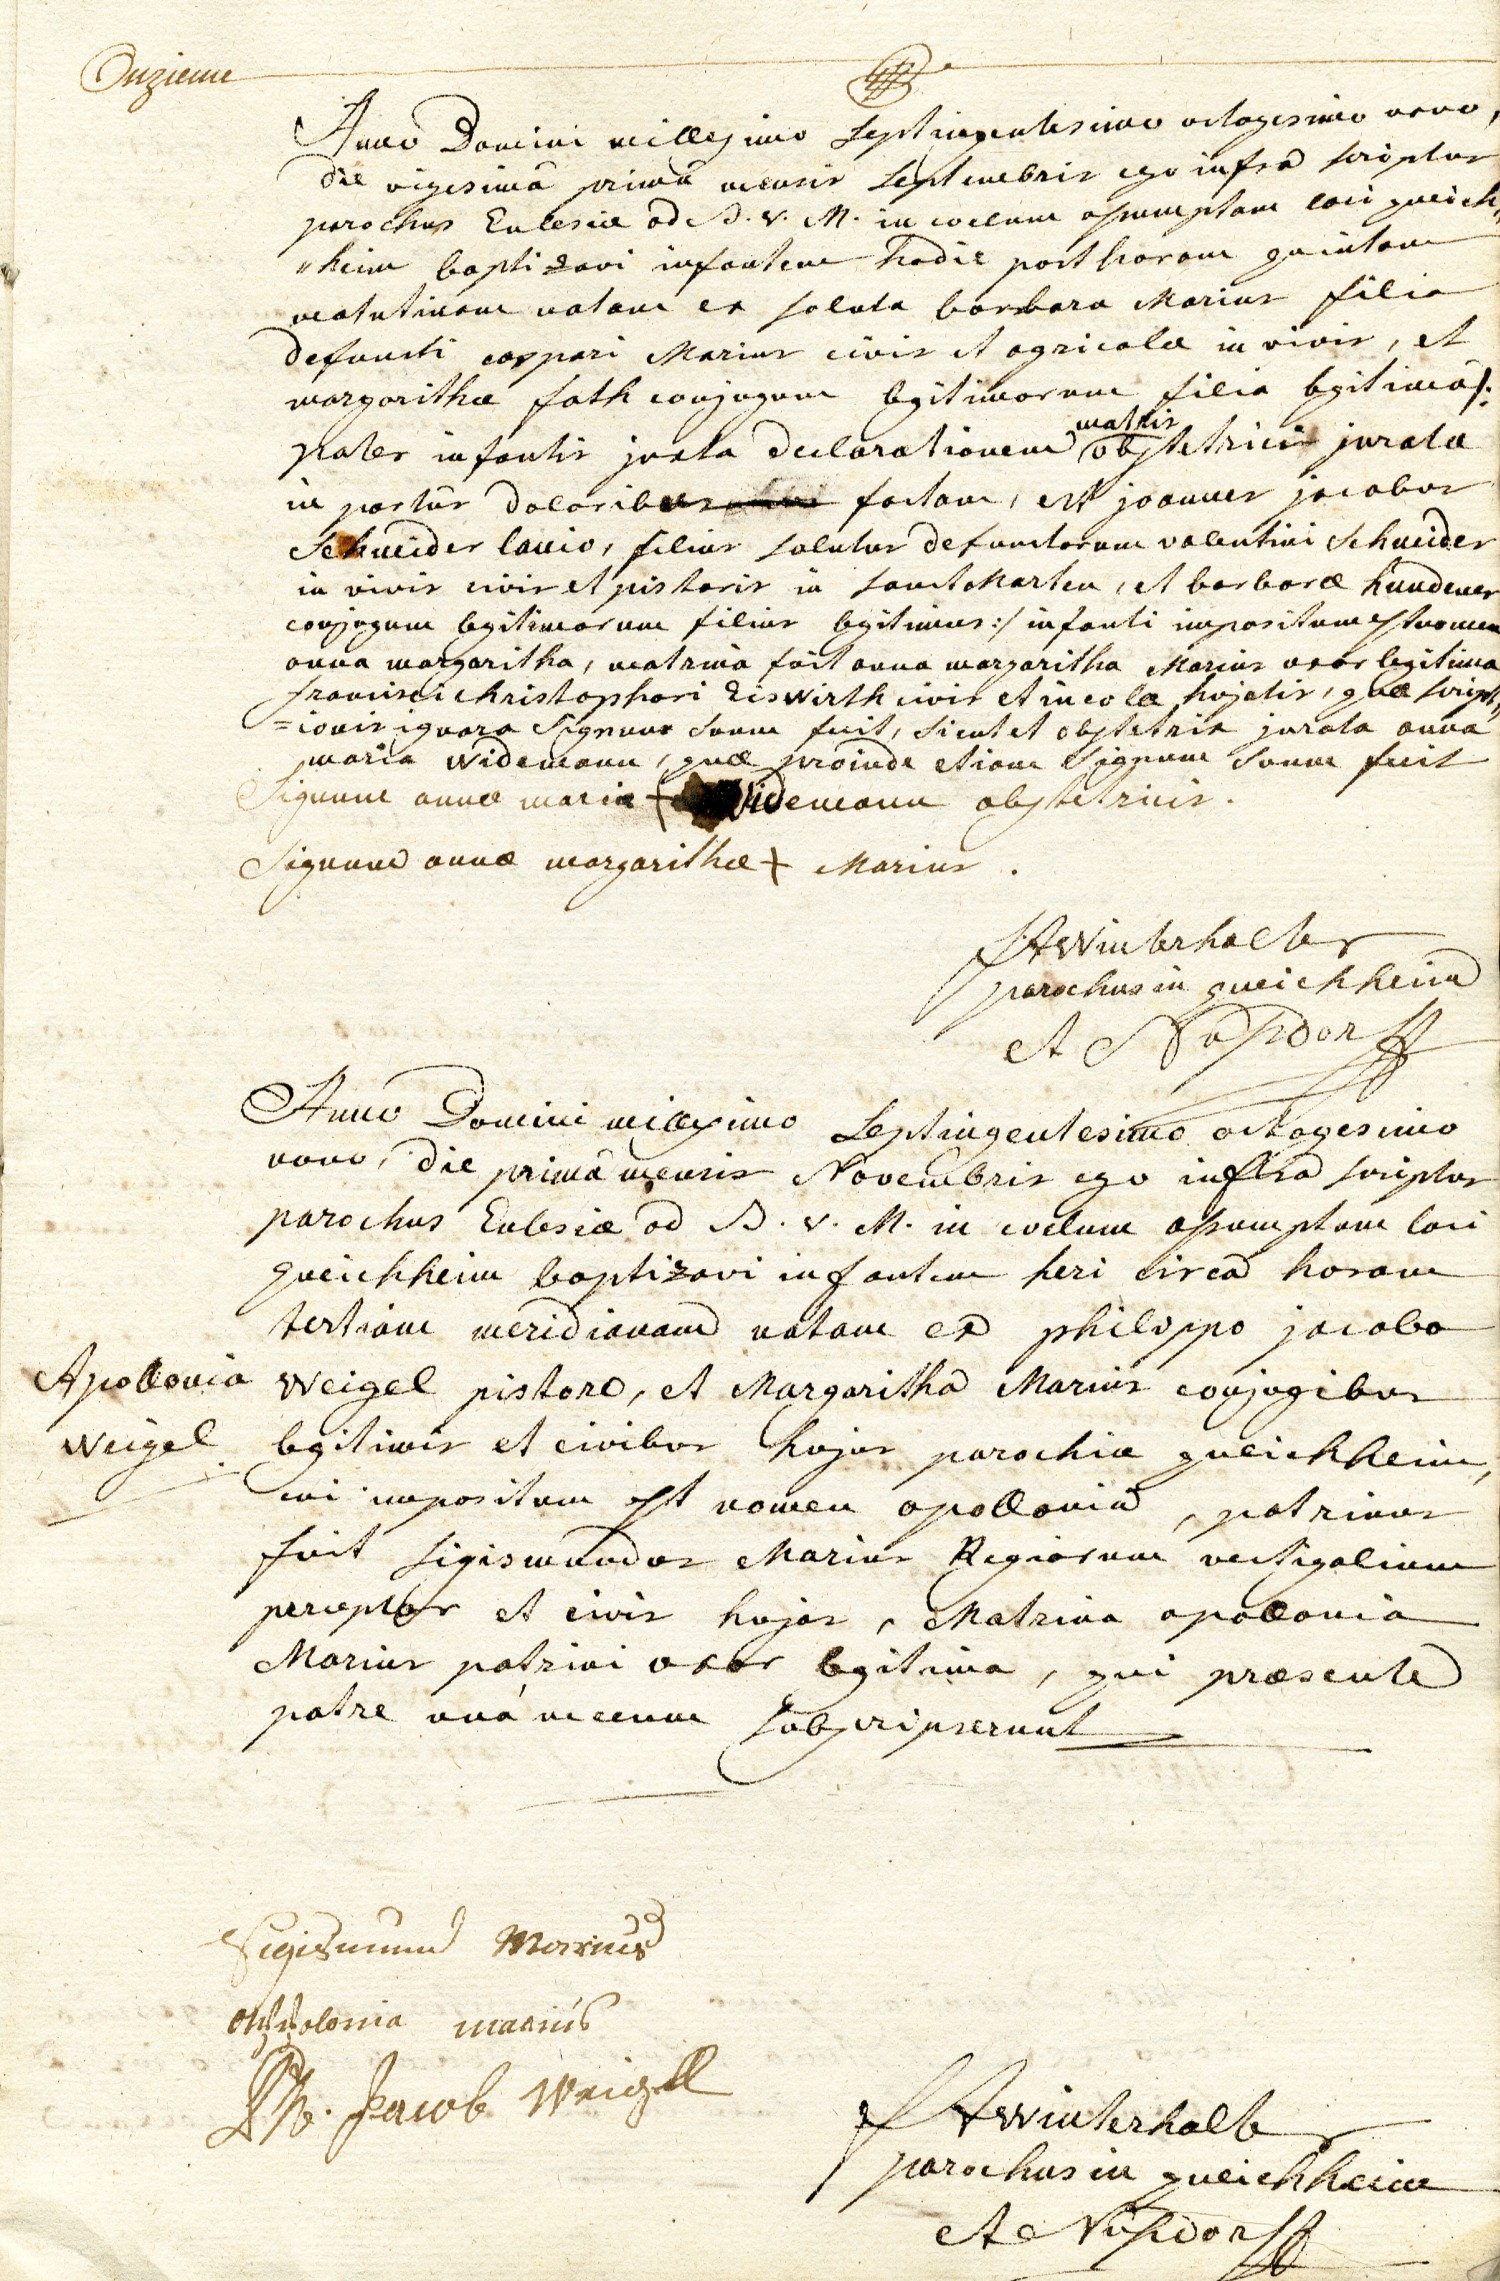 Onzieme
Anno Domini millesimo Septingentesimo octogesimo nono,
die vigesimâ primâ mensis Septembris ego infra scriptus
parochus Eclesiæ ad B. V. M. in coelum assumptam loci queich,
"heim baptizavi infantem hodie post horam quintam
matutinam natam ex soluta barbara Marius filia
defuncti caspari Marius civis et agricolæ in vivis, et
margarithæ fath conjugum legitimorum filia legitima/:
pater infantis juxta declarationem matris obstetrici juratæ
in partûs doloribus factam, est joannes jacobus
Schneider lanio, filius solutus defunctorum valentini Schneider
in vivis civis et pistoris in Sanct Marten, et barbaræ hundemer
conjugum legitimorum filius legitimus:/ infanti impositum est nomen
anna margaritha, matrina fuit anna margaritha Marius uxor legitima
francisci christophori Eiswirth civis et incolæ hujatis, quæ script,
=ionis ignara Signum suum fecit, sicut et obstetrix jurata anna
maria Widemann, quæ proinde etiam Signum suum fecit
Signum annæ maria + Widemann obstetricis.
Signum annæ margarithæ + Marius.
FA Winterhalter
parochus in queichheim
et Nusdorff
Anno Domini millesimo Septingentesimo octogesimo
nono, die primâ mensis Novembris ego infra scriptus
parochus Eclesiæ ad B. V. M. in coelum assumptam loci
queichheim baptizavi infantem heri circa horam
tertiam meridianam natam ex philippo jacobo
Apollonia Weigel pistore, et Margaritha Marius conjugibus
Weigel. legitimis et civibus hujus parochiæ queichheim,
cui impositum est nomen apollonia, patrinus
fuit Sigismundus Marius Regiorum vectigalium
perceptor et civis hujas, Matrina apollonia
Marius patrini uxor legitima, qui præsente
patre unâ mecum subscripserunt
Sigismund Marius
Appolonia marius
Ph. Jacob Weigel
FA Winterhalter
parochus in queichheim
et Nusdorff